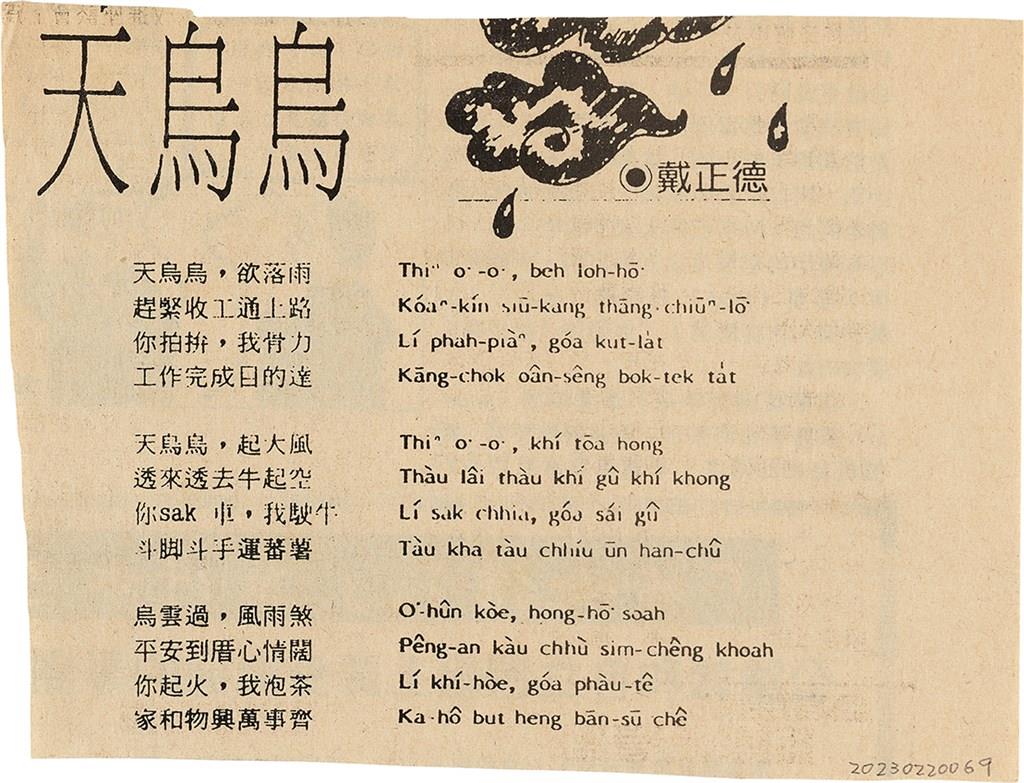 天烏烏
◉戴正德
天烏烏，欲落雨
趕緊收工通上路
你拍拚，我骨力
工作完成目的達
天烏烏，起大風
透來透去牛起空
你sak 車，我駛牛
斗脚斗手運蕃薯
烏雲過，風雨煞
平安到厝心情闊
你起火，我泡茶
家和物興萬事齊
Thiⁿ o͘-o͘, beh loh-hō͘
Kóaⁿ-kín siū-kang thāng-chiūⁿ-lō͘
Lí phah-piàⁿ, góa kut-la̍t
Kāng-chok oân-sêng bok-tek ta̍t
Thiⁿ o͘-o͘, khí tōa hong
Thàu lâi thàu khí gû khí khong
Lí sak chhia, góa sái gû
Tàu kha tàu chhíu ūn han-chû
O͘-hûn kòe, hong-hō͘ soah
Pêng-an kàu chhù sim-chêng khoah
Lí khí-hòe, góa phàu-tê
Ka-hô but heng bān-sū chê
20230220069